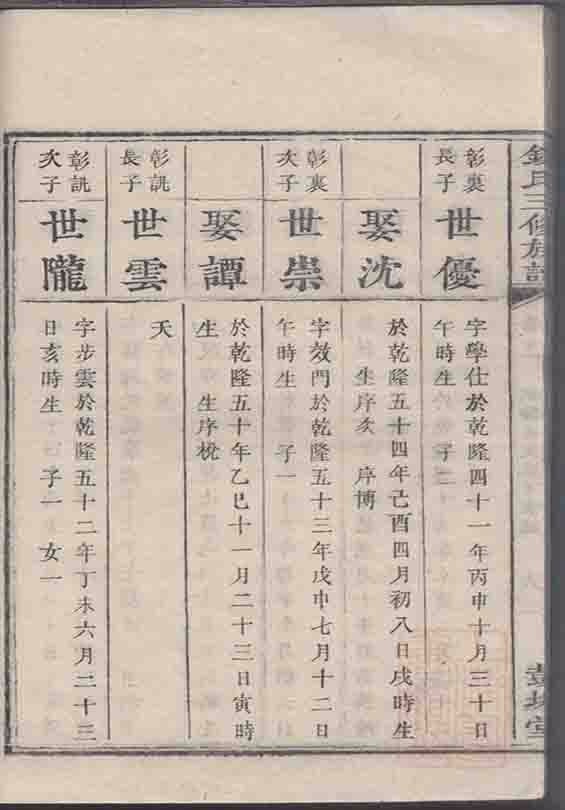 氏三修族譜
彰裏
長子
世優
字學仕於乾隆四十一年丙申十月三十日
午時生 子二
娶沈
於乾隆五十四年己酉四月初八日戌時生
生序炎 序博
彰裏
次子
世崇
字效門於乾隆五十三年戊申七月十二日
午時生 子一
娶譚
於乾隆五十年乙巳十一月二十三日寅時
生 生序
彰訛
長子
世雲
夭
彰訛
次子
世隴
字步雲於乾隆五十二年丁未六月二十三
日亥時生 子一 女一